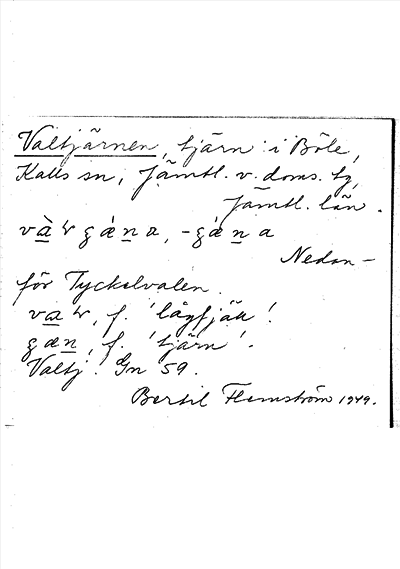 Valtjärnen, tjärn i Böle,
Kalls sn, Jämtl. v. doms. tg,
Jämtl. län.
Nedan-
för Tyckelvalen.
f. 'lågfjäll'.
f. 'tjärn'.
Valtj. Gn 59.
Bertil Flemström 1949.